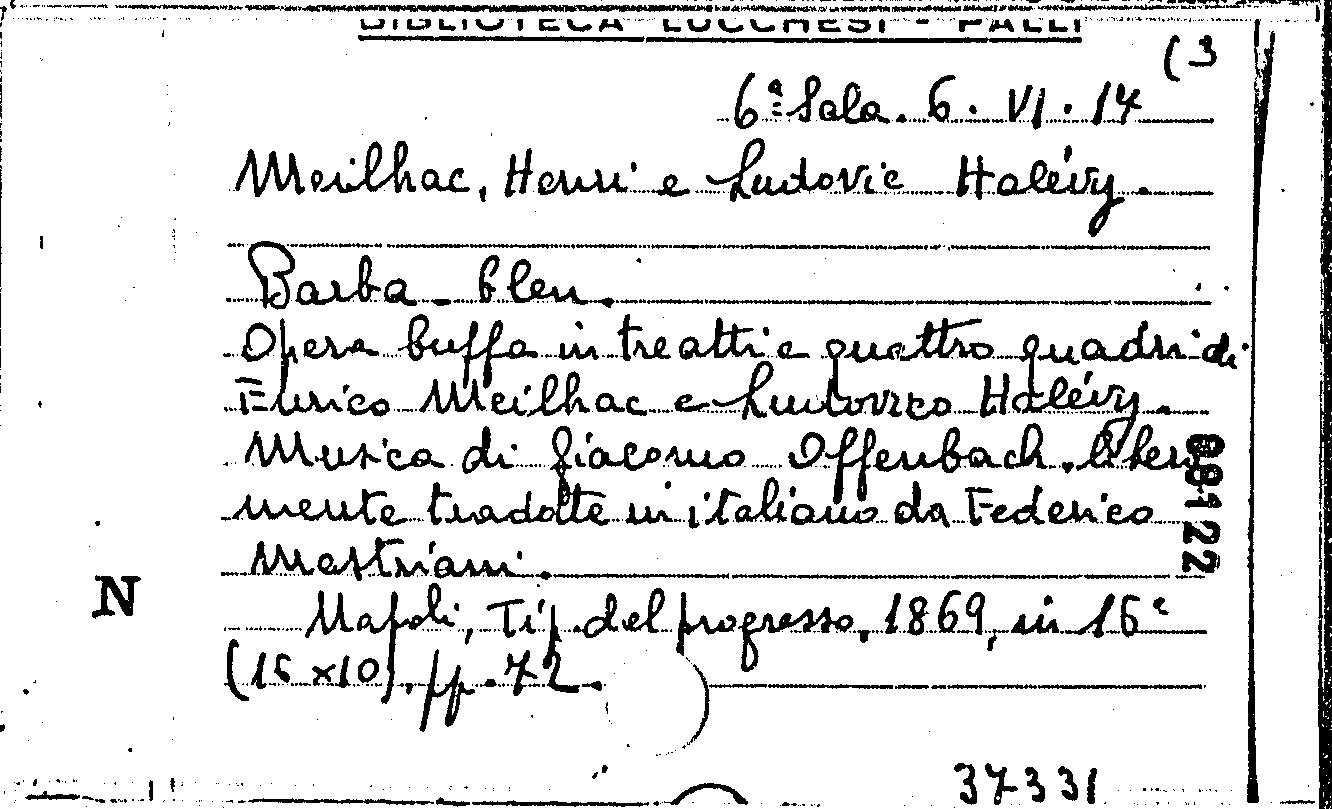 BIBLIOTECA LUCCHESI - PALLI
(3
6ª Sala. 6. VI. 14
Meilhac, Henri e Ludovic Halévy.
Barba-bleu.
Opera buffa in tre atti e quattro quadri di
Enrico Meilhac e Ludovico Halévy.
Musica di Giacomo Offenbach. Libera
mente tradotte in italiano da Federico
Mastriani.
Napoli, Tip. del progresso, 1869, in 16°
(15 x10). pp. 72.
N
89122
37331